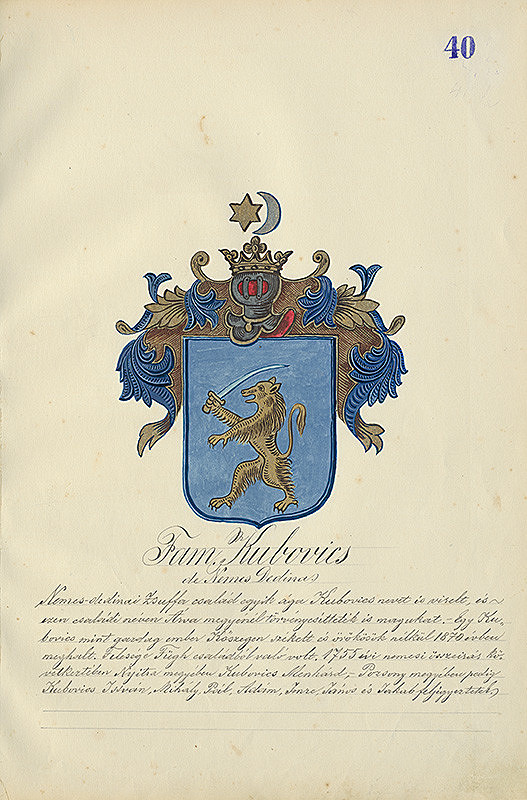 40
Fam. Kubovics
de Nemes Dedina
Nemes-dedinai Zsuffa család egyik ága Kubovics nevet is viselt, és
ezen családi néven Árva megyénél törvényesíttették is magukat. – Egy Ku-
bovics mint gazdag ember Kőszegen székelt és örökösök nélkül 1870 évben
meghalt. Feleség családból való volt. 1755 évi nemesi összeirás kö-
vetkeztében Nyitra megyében Kubovics Menhárd, – Pozsony megyében pedig
Kubovics István, Mihály, Pál, Ádám, Imre, János és Jakab feljegyeztettek